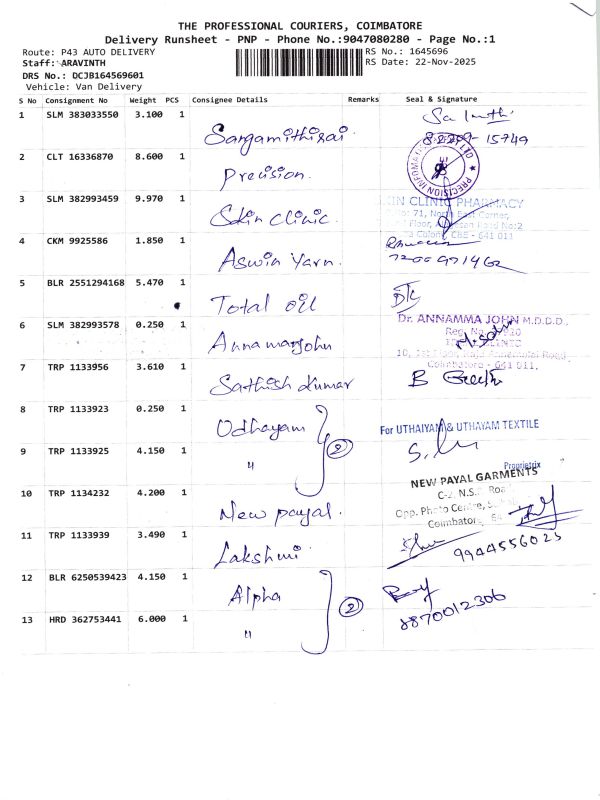 THE PROFESSIONAL COURIERS, COIMBATORE
Delivery Runsheet - PNP - Phone No.:9047080280 - Page No.:1
Route: P43 AUTO DELIVERY
RS No.: 1645696
Staff: ARAVINTH
RS Date: 22-Nov-2025
DRS No.: DCJB164569601
Vehicle: Van Delivery
S No Consignment No Weight PCS Consignee Details Remarks Seal & Signature
1 SLM 383033550 3.100 1 Sangamithirai
2 CLT 16336870 8.600 1 Precision.
3 SLM 382993459 9.970 1 Skin Clinic.
SKIN CLINIC PHARMACY
4 CKM 9925586 1.850 1 Aswin Yarn.
5 BLR 2551294168 5.470 1 Total oil
6 SLM 382993578 0.250 1 Annamarjohn
Dr. ANNAMMA JOHN M.D.D.D.,
Coimbatore - 641 011.
7 TRP 1133956 3.610 1 Sathish Kumar
8 TRP 1133923 0.250 1 Udhayam
For UTHAIYAM & UTHAYAM TEXTILE
9 TRP 1133925 4.150 1 " 2
Proprietrix
10 TRP 1134232 4.200 1 New payal.
NEW PAYAL GARMENTS
C-2, N.S.R. Road
Opp. Photo Centre,
Coimbatore
11 TRP 1133939 3.490 1 Lakshmi
9944556025
12 BLR 6250539423 4.150 1 Alpha 2
8870012306
13 HRD 362753441 6.000 1 "